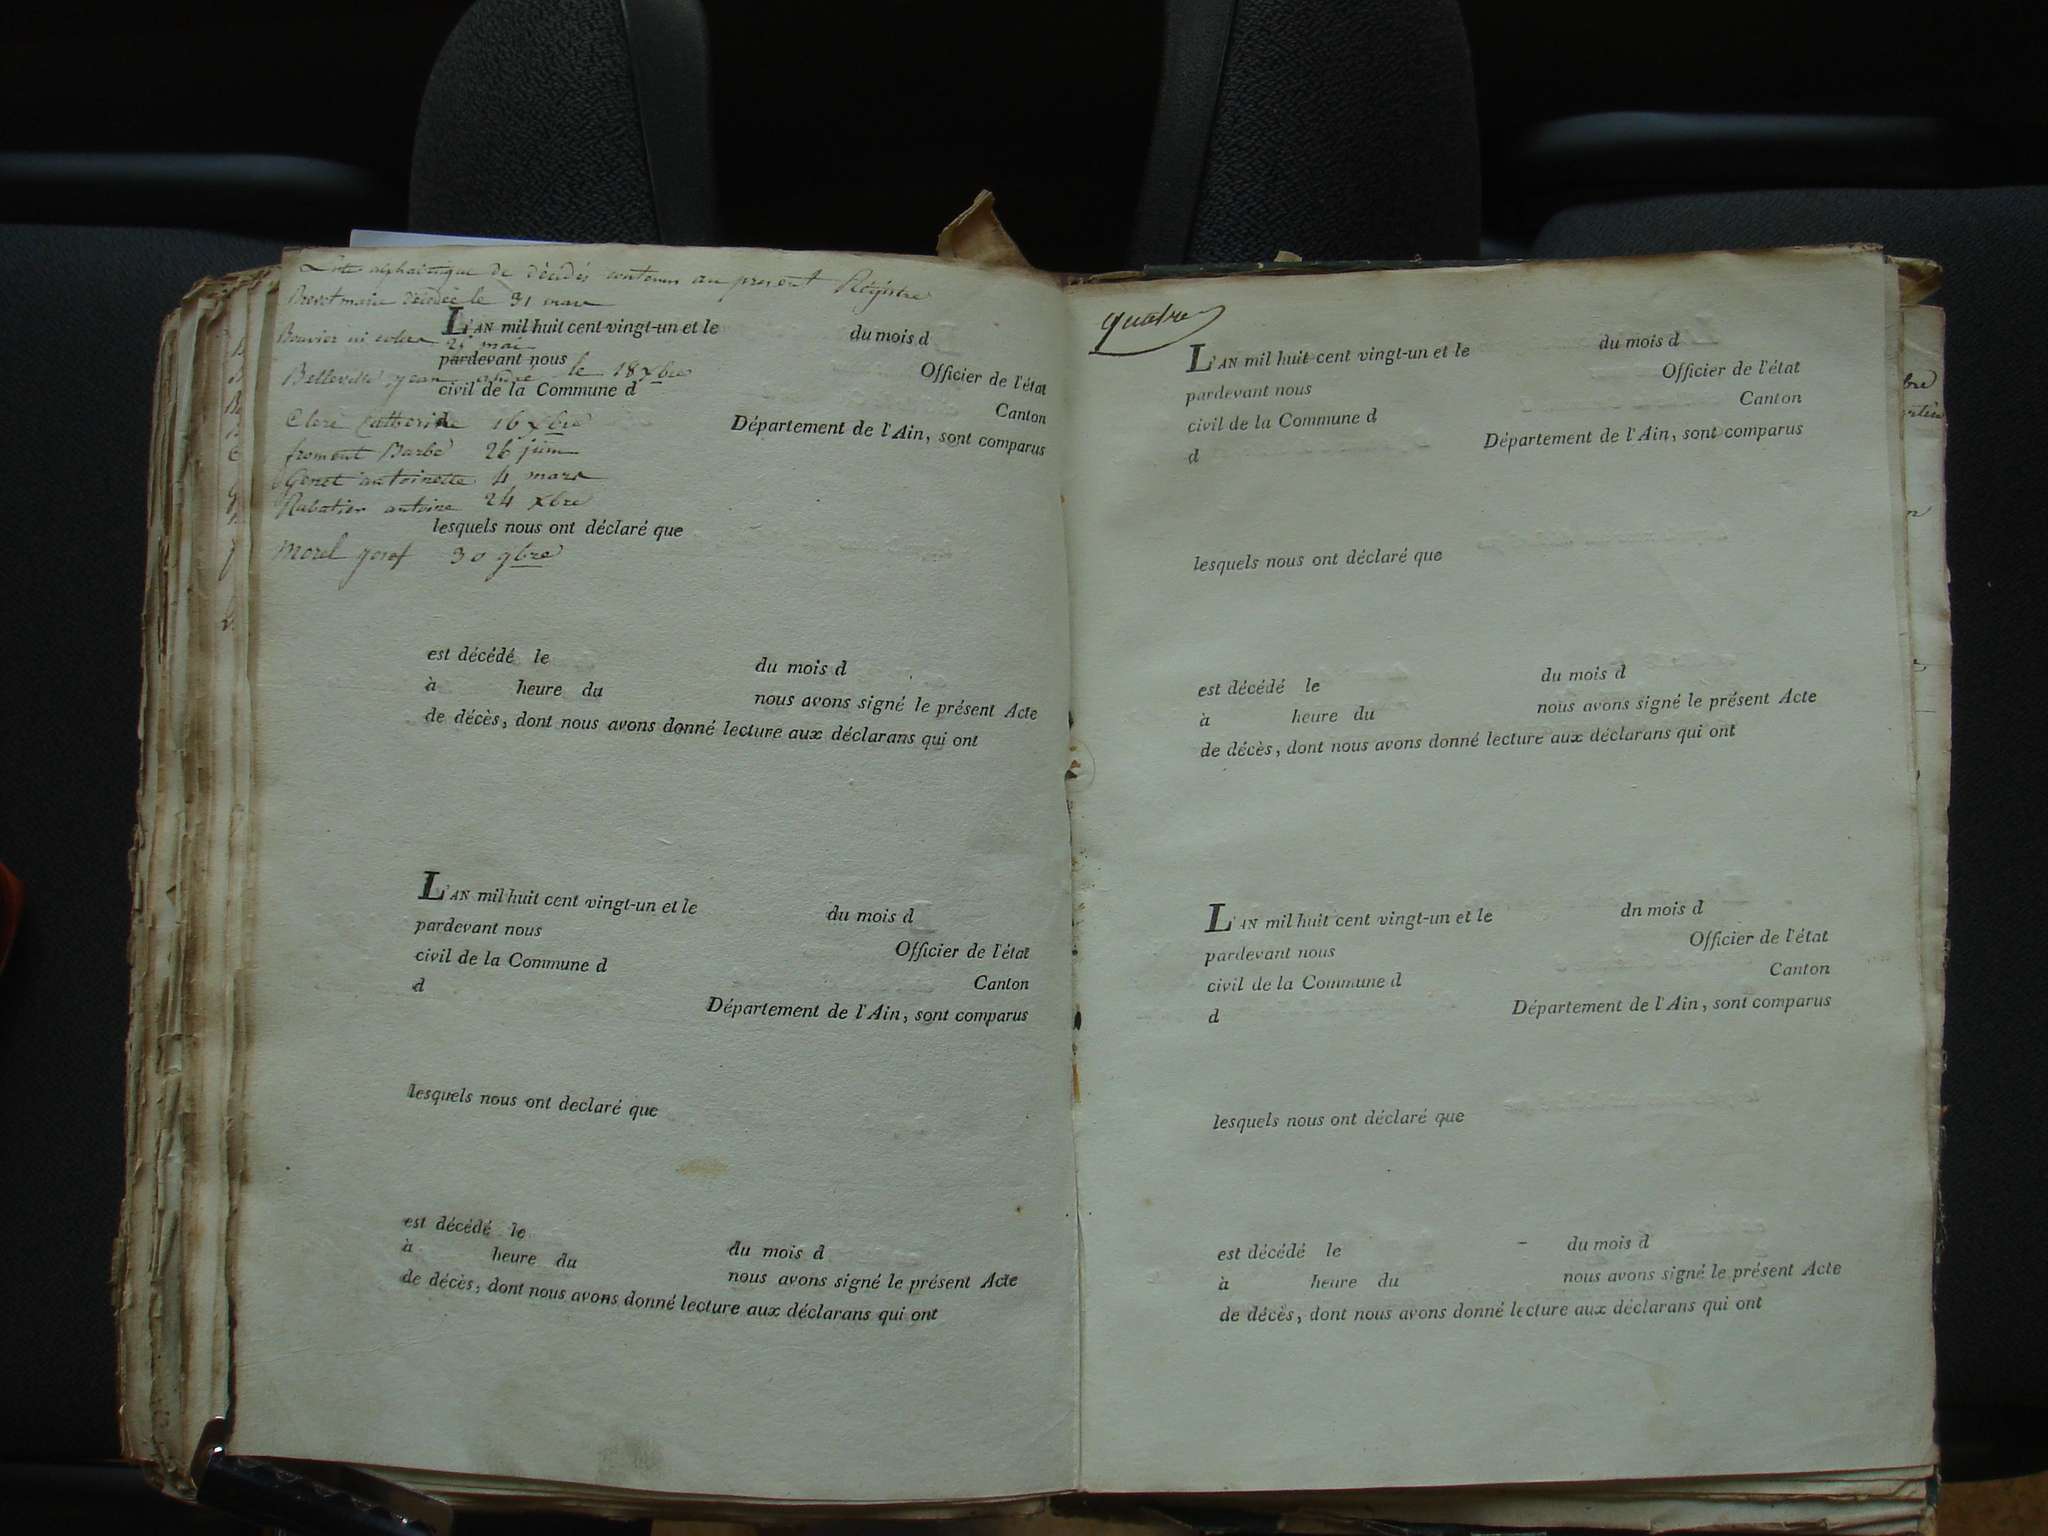 Liste alphabetique de décédés contenus au present Registre
Brevet marie décédée le 31 mars
L'AN mil huit cent vingt-un et le du mois d
Bouvier 21 mai
pardevant nous Officier de l'état
Belleville jean le 18 xbre
civil de la Commune d Canton
Clere Catherine 16 xbre
d Département de l'Ain, sont comparus
froment Barbe 26 juin
Genet antoinette 4 mars
Rabatier antoine 24 xbre
lesquels nous ont déclaré que
Morel josef 30 9bre
est décédé le du mois d
à heure du nous avons signé le présent Acte
de décès, dont nous avons donné lecture aux déclarans qui ont
L'AN mil huit cent vingt-un et le du mois d
pardevant nous Officier de l'état
civil de la Commune d Canton
d Département de l'Ain, sont comparus
lesquels nous ont declaré que
est décédé le du mois d
à heure du nous avons signé le présent Acte
de décès, dont nous avons donné lecture aux déclarans qui ont
quatre
L'AN mil huit cent vingt-un et le du mois d
pardevant nous Officier de l'état
civil de la Commune d Canton
d Département de l'Ain, sont comparus
lesquels nous ont déclaré que
est décédé le du mois d
à heure du nous avons signé le présent Acte
de décès, dont nous avons donné lecture aux déclarans qui ont
L'AN mil huit cent vingt-un et le dn mois d
pardevant nous Officier de l'état
civil de la Commune d Canton
d Département de l'Ain, sont comparus
lesquels nous ont déclaré que
est décédé le du mois d
à heure du nous avons signé le présent Acte
de décès, dont nous avons donné lecture aux déclarans qui ont